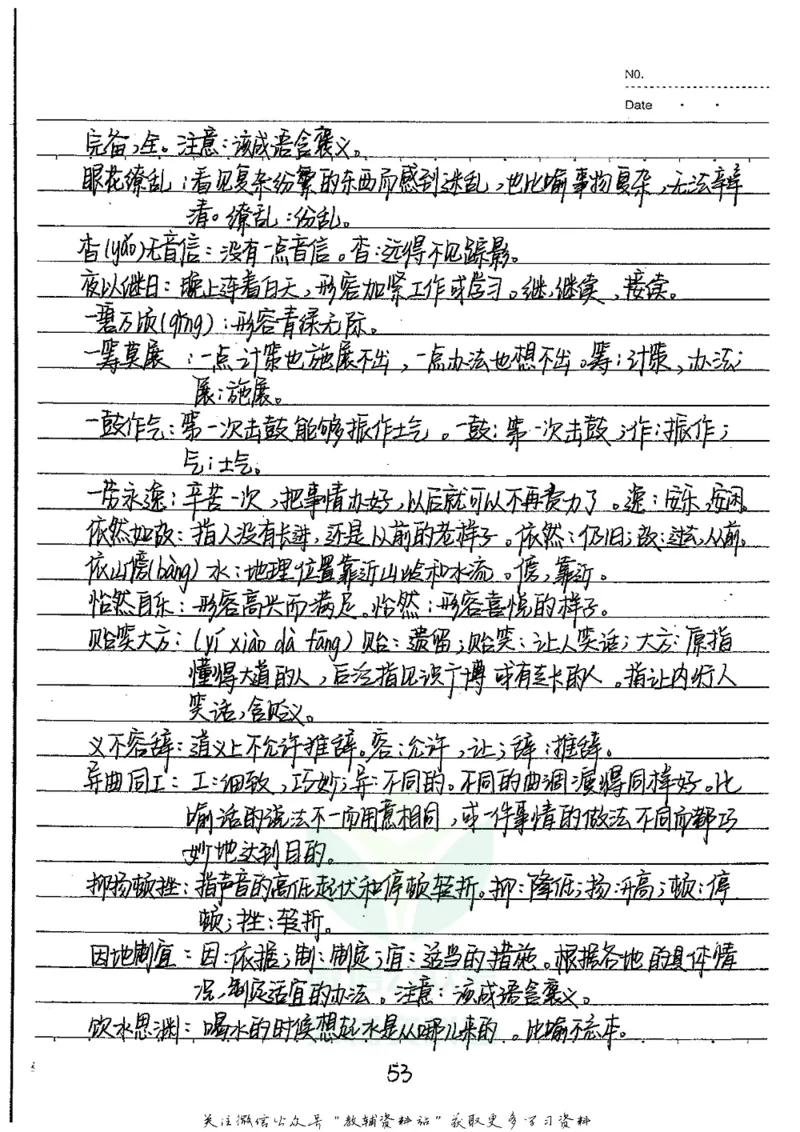 NO.
Date
完备,全。注意:该成语含褒义。
眼花缭乱:看见复杂纷繁的东西而感到迷乱,也比喻事物复杂,无法辨
清。缭乱:纷乱。
杳(yǎo)无音信:没有一点音信。杳:远得不见踪影。
夜以继日:晚上连着白天,形容加紧工作或学习。继,继续,接续。
一碧万顷(qǐng):形容青绿无际。
一筹莫展:一点计策也施展不出,一点办法也想不出。筹:计策,办法;
展:施展。
一鼓作气:第一次击鼓能够振作士气。一鼓:第一次击鼓;作:振作;
气:士气。
一劳永逸:辛苦一次,把事情办好,以后就可以不再费力了。逸:安乐,安闲。
依然如故:指人没有长进,还是以前的老样子。依然:仍旧;故:过去,从前。
依山傍(bàng)水:地理位置靠近山岭和水流。傍,靠近。
怡然自乐:形容高兴而满足。怡然:形容喜悦的样子。
贻笑大方:(yí xiào dà fāng)贻:遗留;贻笑:让人笑话;大方:原指
懂得大道的人,后泛指见识广博或有专长的人。指让内行人
笑话,含贬义。
义不容辞:道义上不允许推辞。容:允许,让;辞:推辞。
异曲同工:工:细致,巧妙;异:不同的。不同的曲调演得同样好。比
喻话的说法不一而用意相同,或一件事情的做法不同而都巧
妙地达到目的。
抑扬顿挫:指声音的高低起伏和停顿转折。抑:降低;扬:升高;顿:停
顿;挫:转折。
因地制宜:因:依据;制:制定;宜:适当的措施。根据各地的具体情
况,制定适宜的办法。注意:该成语含褒义。
饮水思源:喝水的时候想起水是从哪儿来的。比喻不忘本。
53
关注微信公众号"教辅资料站"获取更多学习资料